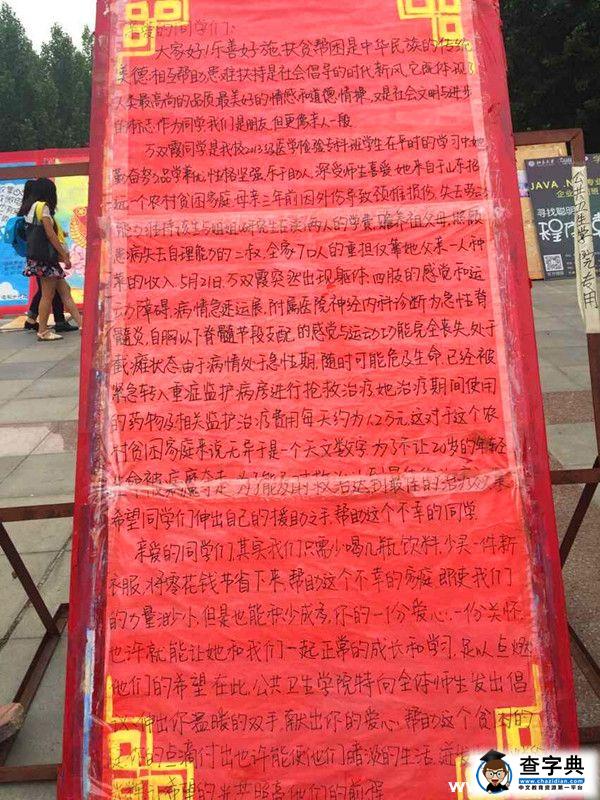 亲爱的同学们:
大家好!乐善好施扶贫帮困是中华民族的传统
美德,相互帮助患难扶持是社会倡导的时代新风,它既体现了
人类最高尚的品质最美好的情感和道德情操,又是社会文明与进步
的标志.作为同学我们是朋友,但更像亲人一般
万双霞同学是我校2013级医学检验专科班学生在平时的学习中她
勤奋努力品学兼优,性格坚强,乐于助人,深受师生喜爱,她来自于山东招
远一个农村贫困家庭,母亲三年前因外伤导致颈椎损伤,失去劳动
能力,维持该生与姐姐(研究生在读)两人的学费,赡养祖父母,照顾
患病失去自理能力的二叔,全家7口人的重担仅靠她父亲一人种
苹果的收入,5月21日,万双霞突然出现躯体,四肢的感觉和运
动障碍,病情急速进展,附属医院神经内科诊断为急性脊
髓炎,自胸以下脊髓节段支配的感觉与运动功能完全丧失,处于
截瘫状态,由于病情处于急性期,随时可能危及生命,已经被
紧急转入重症监护病房进行抢救治疗,她治疗期间使用
的药物及相关监护治疗费用每天约为1.2万元,这对于这个农
村贫困家庭来说无异于是一个天文数字,为了不让20岁的年轻
生命被病魔夺走,为了能及时救治达到最佳的治疗效果,
希望同学们伸出自己的援助之手,帮助这个不幸的同学.
亲爱的同学们,其实我们只需少喝几瓶饮料,少买一件新
衣服,将零花钱节省下来,帮助这个不幸的家庭,即使我们
的力量渺小,但是也能积少成多,你的一份爱心,一份关怀,
也许就能让她和我们一起正常的成长和学习,足以点燃
他们的希望.在此,公共卫生学院特向全体师生发出倡
伸出你温暖的双手,献出你的爱心,帮助这个贫困的
你的点滴付出也许能使他们暗淡的生活
希望的光芒照亮他们的前程
公共卫生学院专用
JAVA .N
企业
寻找聪明
查字典
www.chazidian.com
中文教育资源第一平台